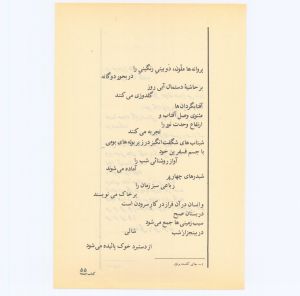 پروانه‌ها ملون، دو بیتی رنگینی را
در بحور دوگانه
بر حاشیهٔ دستمال آبی روز
گلدوزی می کنند
آفتابگردان‌ها
مثنوی وصل آفتاب و
ارتفاع وحدت نور را
تجربه می کنند
شبتاب های شگفت انگیز در زیر بوته‌های بومی
با جسم فسفرین خود
آواز روشنائی شب را
آماده می شوند
شبدرهای چهارپر
رباعی سبز زمان را
بر خاک می نویسند
و انسان در آن فراز در کار سرودن است
در بستان صبح
سیب زمینی ها جمع می شود
در پنجزار شب شالی
از دستبرد خوک پائیده می شود
۵۵